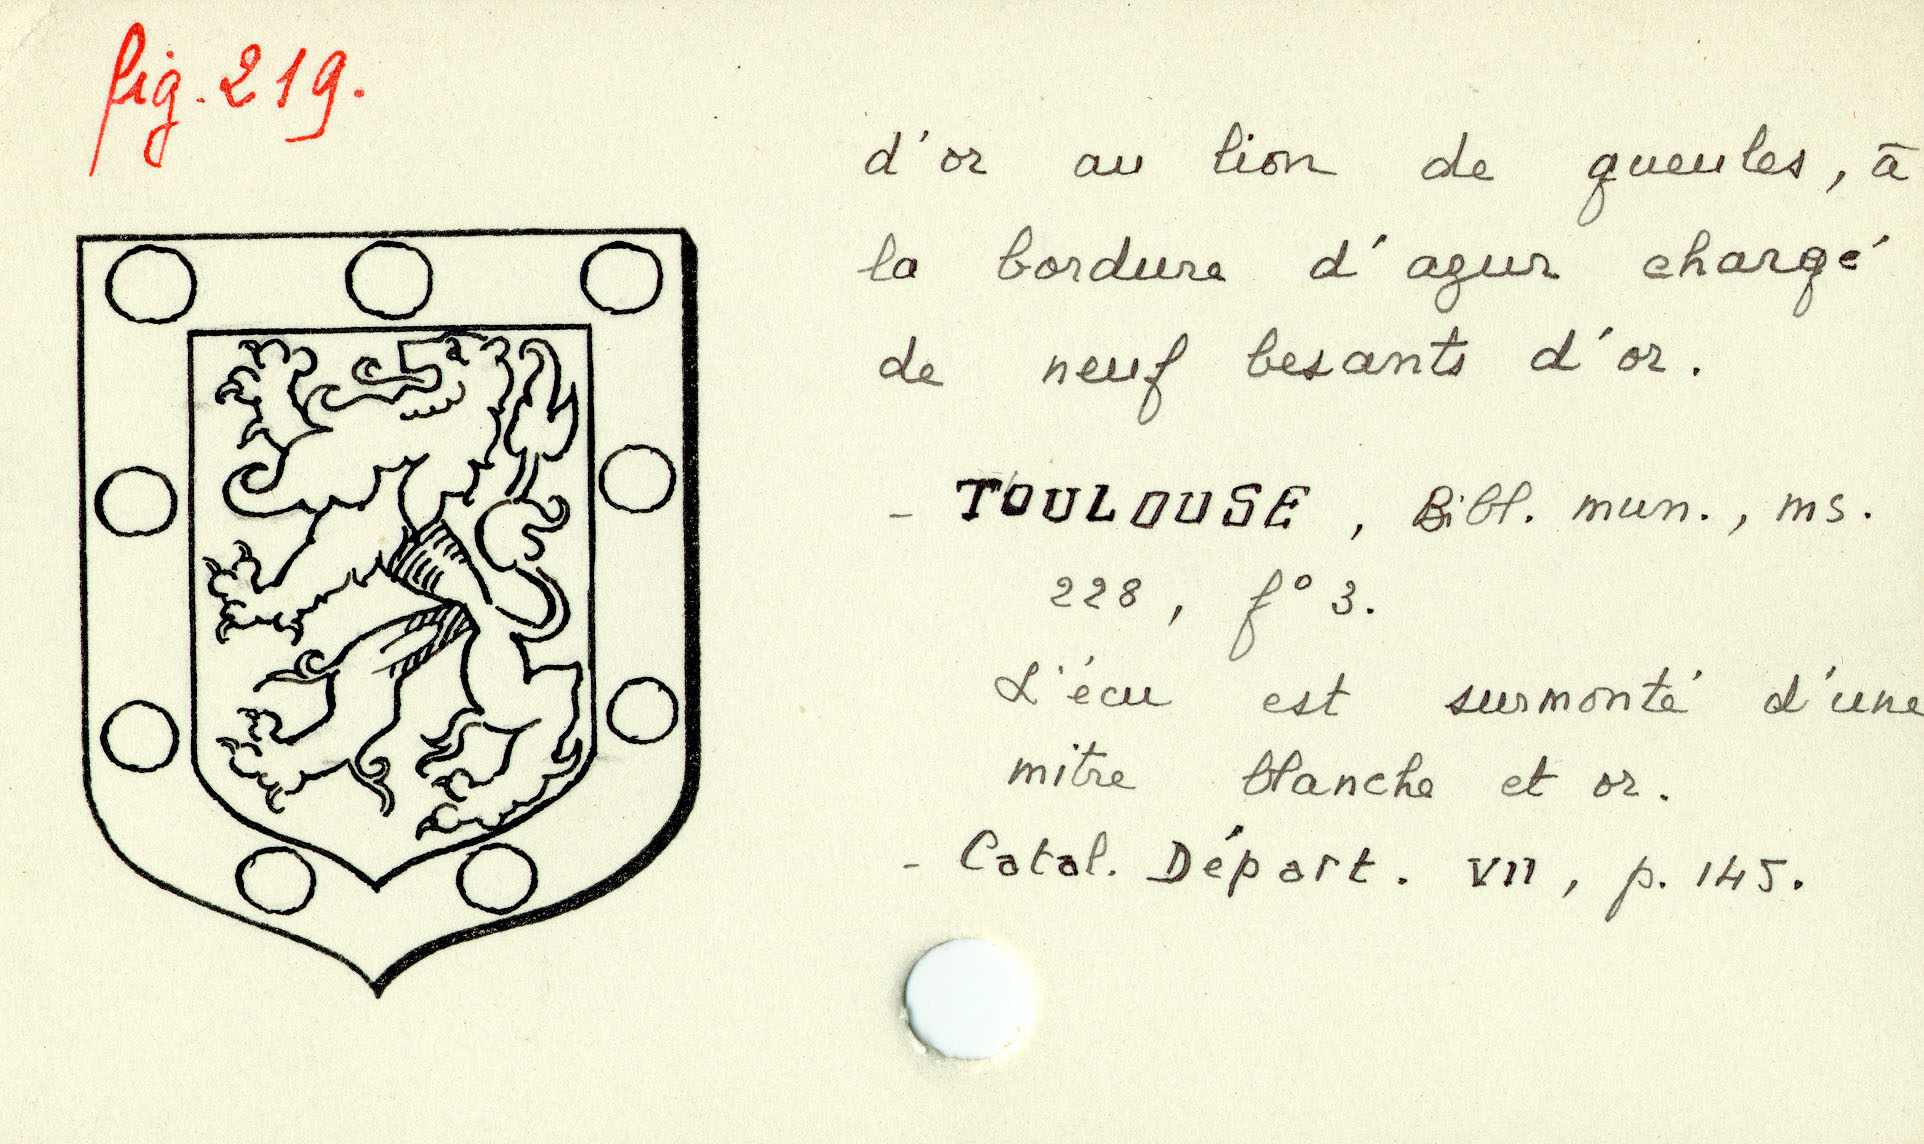 fig. 219.
d'or au lion de gueules, à
la bordure d'azur chargé
de neuf besants d'or.
- TOULOUSE, Bibl. mun., ms.
228, f° 3.
L'écu est surmonté d'une
mitre blanche et or.
- Catal. Départ. VII, p. 145.